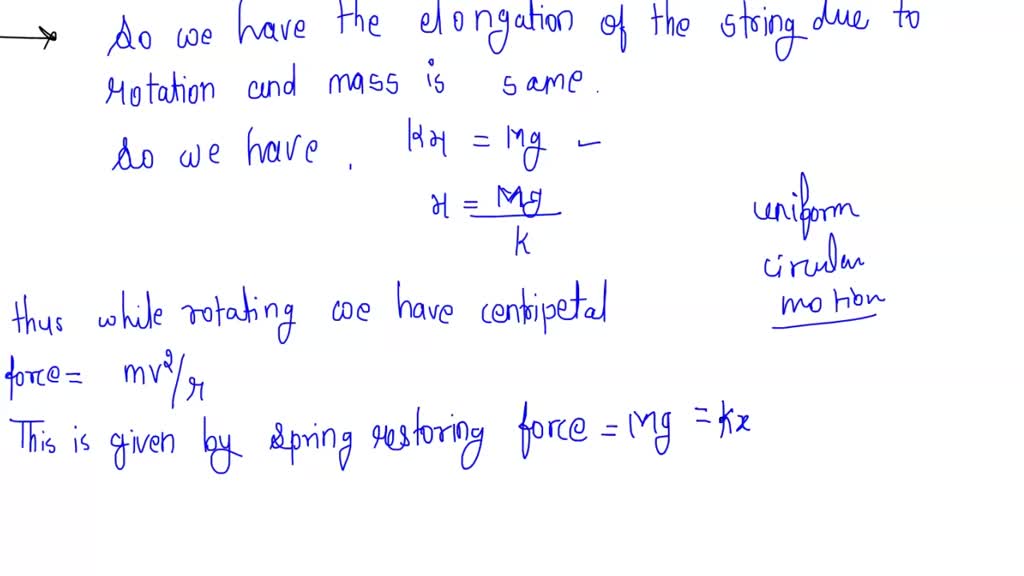 So we have the elongation of the string due to
rotation and mass is same.
So we have, kx = Mg
x = Mg
k
uniform
circular
motion
thus while rotating we have centripetal
force = mv²/r
This is given by spring restoring force = Mg = kx